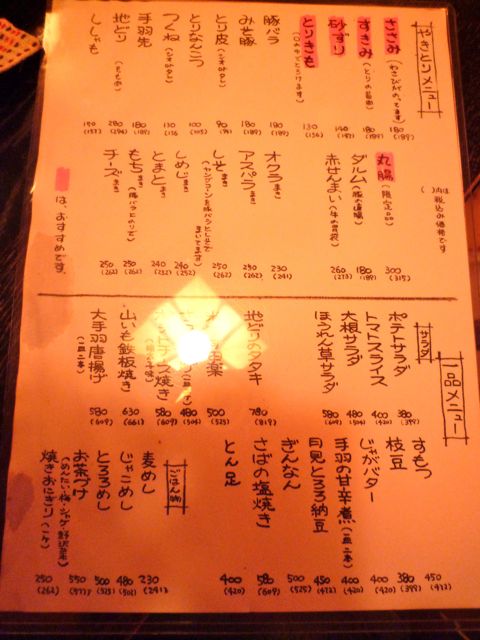 やきとりメニュー
( )内は税込み価格です
ささみ(わさびがのってます) 180(189)
すきみ(とりの首肉) 180(189)
砂ずり 140(147)
とりきも(口の中でとろけます) 130(136)
豚バラ 180(189)
みそ豚 180(189)
とり皮 90(94)
とりなんこつ 100(105)
つくね 130(136)
手羽先 180(189)
地どり(もも肉) 280(294)
ししゃも 150(157)
丸腸(限定品) 300(315)
ダルム(豚の直腸) 180(189)
赤せんまい(牛の胃袋) 260(273)
オクラまき 230(241)
アスパラまき 250(262)
しそまき 250(262)
しめじまき 240(252)
とまとまき 240(252)
もちまき(豚バラとのりで) 250(262)
チーズまき 250(262)
は、おすすめです。
一品メニュー
サラダ
ポテトサラダ 380(399)
トマトスライス 400(420)
大根サラダ 480(504)
ほうれん草サラダ 580(609)
地どりのタタキ 780(819)
500(525)
480(504)
焼き 580(609)
山いも鉄板焼き 630(661)
大手羽唐揚げ(一皿二本) 580(609)
すもつ 450(472)
枝豆 380(399)
じゃがバター 400(420)
手羽の甘辛煮(一皿二本) 400(420)
月見とろろ納豆 450(472)
ぎんなん 500(525)
さばの塩焼き 580(609)
とん足 400(420)
ごはん物
麦めし 230(241)
じゃこめし 480(504)
とろろめし 500(525)
お茶づけ(めんたい・梅・シャケ・野沢菜) 550(577)
焼きおにぎり(一ケ) 250(262)